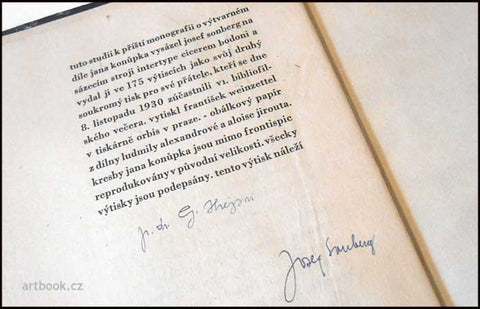 tuto studii k příští monografii o výtvarném
díle jana konůpka vysázel josef sonberg na
sázecím stroji intertype cicerem bodoni a
vydal ji ve 175 výtiscích jako svůj druhý
soukromý tisk pro své přátele, kteří se dne
8. listopadu 1930 zúčastnili vi. bibliofil-
ského večera. vytiskl františek weinzettel
v tiskárně orbis v praze. - obálkový papír
z dílny ludmily alexandrové a aloise jirouta.
kresby jana konůpka jsou mimo frontispic
reprodukovány v původní velikosti. všecky
výtisky jsou podepsány. tento výtisk náleží
Josef Sonberg
artbook.cz